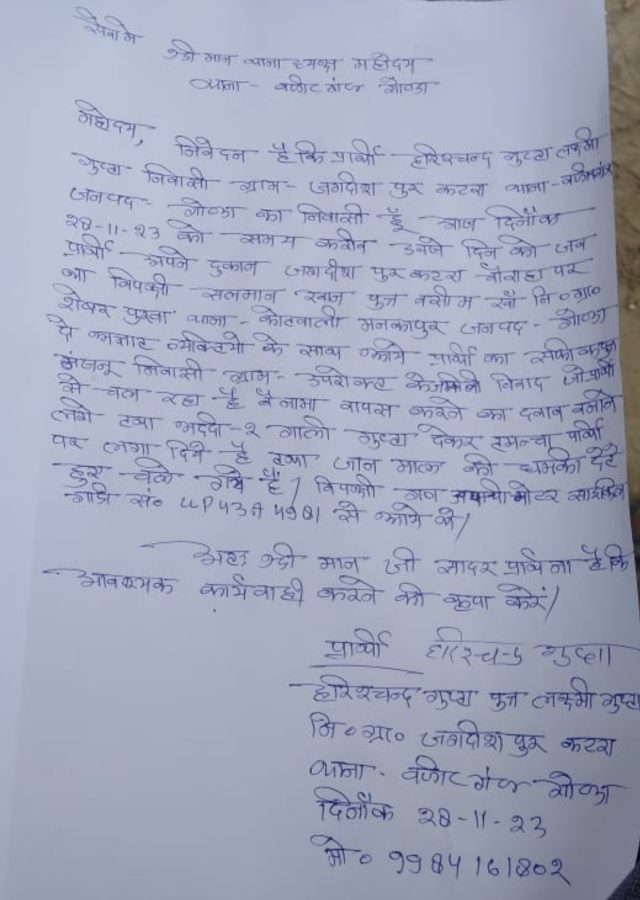 सेवा मे
श्री मान थाना ध्यक्ष महोदय
थाना - वजीरगंज गोण्डा
महोदय, निवेदन है कि प्रार्थी हरिश्चन्द गुप्ता लक्ष्मी
गुप्ता निवासी ग्राम - जगदीश पुर कटरा थाना - वजीरगंज
जनपद - गोण्डा का निवासी हूँ आज दिनाँक
28-11-23 को समय करीब उपणे दिन को जब
प्रार्थी अपने दुकान जगदीश पुर कटरा चौराहा पर
था विपक्षी सलमान खान पुत्र वसीम खाँ नि० ग्रा०
शेखर पुरवा थाना - कोतवाली मनकापुर जनपद - गोण्डा
दो अज्ञात व्यक्तियो के साथ आये प्रार्थी का
निवासी ग्राम - उपरोक्त के जमीनी विवाद जो प्रार्थी
से चल रहा है बैनामा वापस करने का दबाव बनाने
लगे तथा भद्दी-२ गाली गुप्ता देकर तमन्चा प्रार्थी
पर लगा दिये है तथा जान माल की धमकी देते
हुए चले गये हैं / विपक्षी गण मोटर साइकिल
गाड़ी सं० UP43A4981 से आये थे /
अतः श्री मान जी सादर प्रार्थना है कि
आवश्यक कार्यवाही करने की कृपा करें /
प्रार्थी हरिश्चन्द गुप्ता
हरिश्चन्द गुप्ता पुत्र लक्ष्मी गुप्ता
नि० ग्रा० जगदीश पुर कटरा
थाना - वजीरगंज गोण्डा
दिनाँक 28-11-23
मो० 9984161802